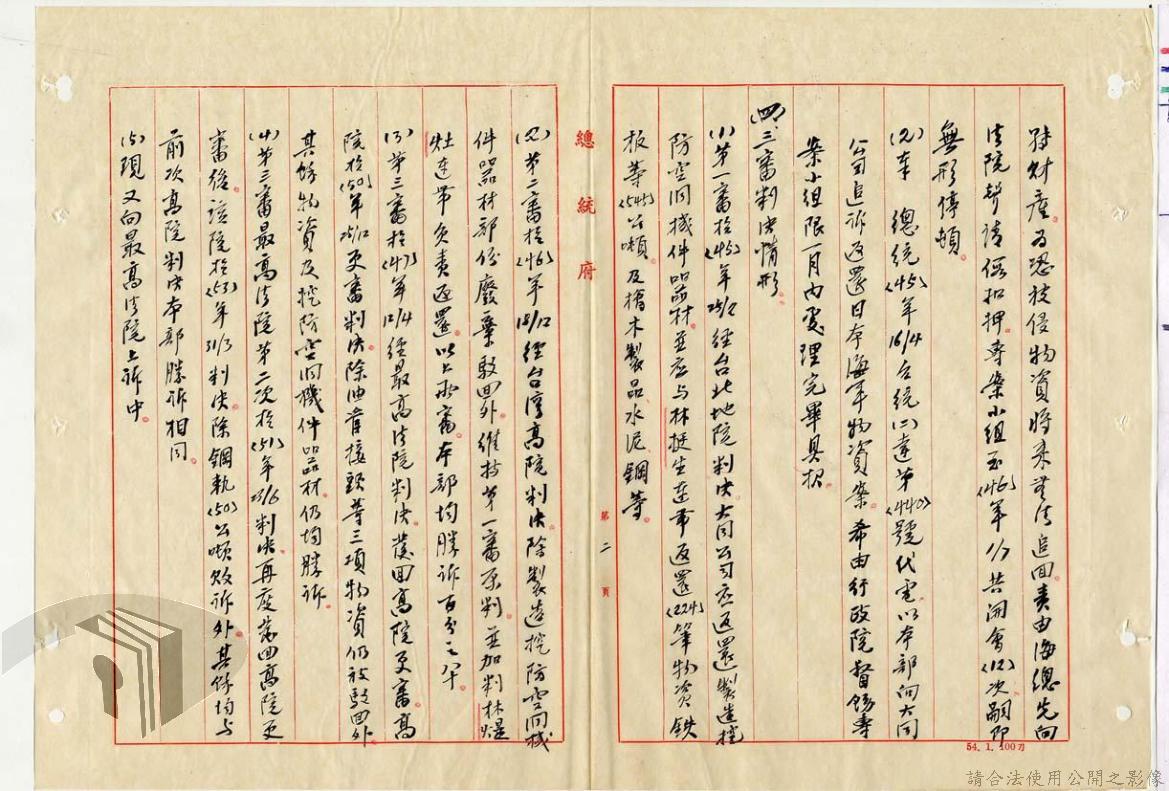 特財產。為恐被侵物資將來無法追回責由海總先向
法院聲請假扣押專案小組至(46)年1/7共開會(12)次嗣即
無形停頓。
(2)奉　總統(45)年16/4台統(二)達第(440)號代電以本部向大同
公司追訴返還日本海軍物資案。希由行政院督飭專
案小組限一月內處理完畢具報
(四)、三審判決情形。
(1)第一審於(45)年25/2經台北地院判決大同公司應返還製造挖
防空洞機件器材。並應与林挺生連帶返還(224)筆物資鉄
板等(545)公噸。及檜木製品水泥鋼等。
第二頁
54. 1. 100刀
總統府
(2)第二審於(46)年18/12經台灣高院判決除製造挖防空洞機
件器材部份廢棄駁回外維持第一審原判。並加判林煶
灶連帶負責返還。以上兩審本部均勝訴百分之八十
(3)第三審於(47)年12/4經最高法院判決發回高院更審高
院於(50)年25/12更審判決除油管接頭等三項物資仍被駁回外
其餘物資及挖防空洞機件器材。仍均勝訴。
(4)第三審最高法院第二次於(51)年23/6判決再度發回高院更
審後。該院於(53)年31/3判決除鋼軌(50)公噸敗訴外。其餘均与
前次高院判決本部勝訴相同。
(5)現又向最高法院上訴中。
請合法使用公開之影像